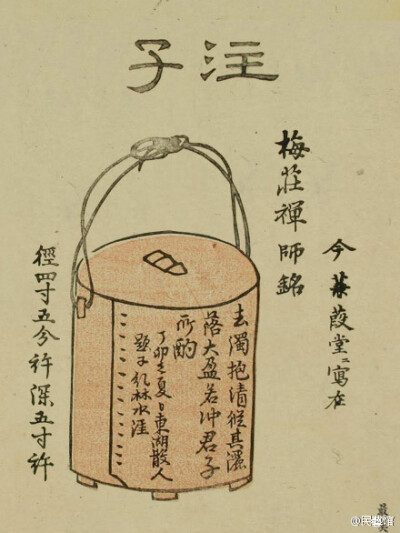 注子
今蒹葭堂ニ寫在
梅莊禪師銘
去濁抱清縱其灑
落大盈若冲君子
所酌
丁卯之夏日東湖散人
題于糺林水涯
徑四寸五分許深五寸許
@民藝館